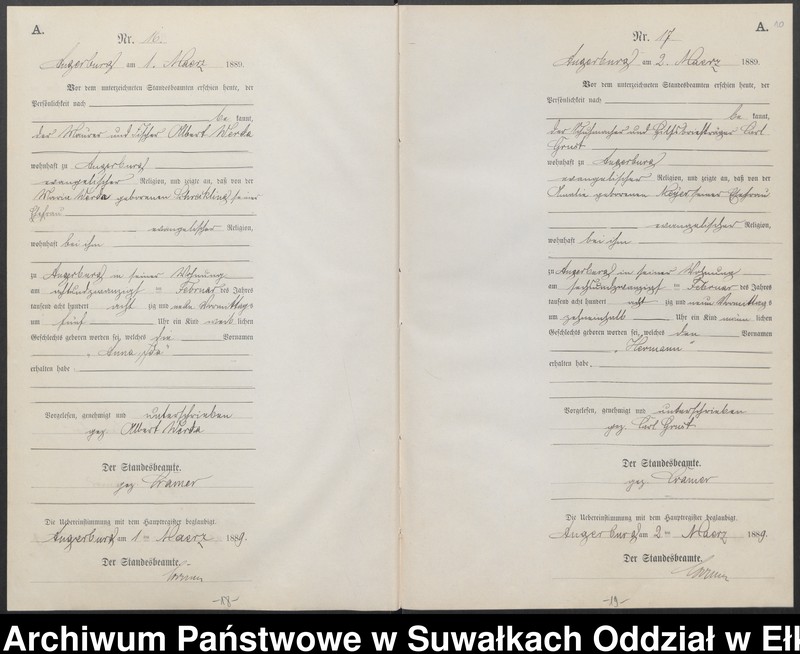 A.
Nr. 16.
Angerburg am 1. Maerz 1889.
Vor dem unterzeichneten Standesbeamten erschien heute, der
Persönlichkeit nach
be kannt,
der Maurer und Albert Werda
wohnhaft zu Angerburg
evangelischer Religion, und zeigte an, daß von der
Maria Werda geborenen seiner
Ehefrau
evangelischer Religion,
wohnhaft bei ihm
zu Angerburg in seiner Wohnung
am achtundzwanzigst en Februar des Jahres
tausend acht hundert acht zig und neun Vormittags
um fünf Uhr ein Kind weib lichen
Geschlechts geboren worden sei, welches die Vornamen
„Anna Ida"
erhalten habe.
Vorgelesen, genehmigt und unterschrieben
gez. Albert Werda
Der Standesbeamte.
gez Cramer
Die Uebereinstimmung mit dem Hauptregister beglaubigt.
Angerburg am 1 ten Maerz 1889.
Der Standesbeamte.
-18-
A.
Nr. 17
Angerburg am 2. Maerz 1889.
Vor dem unterzeichneten Standesbeamten erschien heute, der
Persönlichkeit nach
be kannt,
der Schuhmacher und Hilfsbriefträger Carl
Ernst
wohnhaft zu Angerburg
evangelischer Religion, und zeigte an, daß von der
Amalie geborenen Meyer seiner Ehefrau
evangelischer Religion,
wohnhaft bei ihm
zu Angerburg in seiner Wohnung
am sechsundzwanzigst en Februar des Jahres
tausend acht hundert acht zig und neun Vormittags
um zehneinhalb Uhr ein Kind männ lichen
Geschlechts geboren worden sei, welches den Vornamen
„Hermann"
erhalten habe.
Vorgelesen, genehmigt und unterschrieben
gez. Carl Ernst
Der Standesbeamte.
gez Cramer
Die Uebereinstimmung mit dem Hauptregister beglaubigt.
Angerburg am 2 ten Maerz 1889.
Der Standesbeamte.
-19-
Archiwum Państwowe w Suwałkach Oddział w Ełk